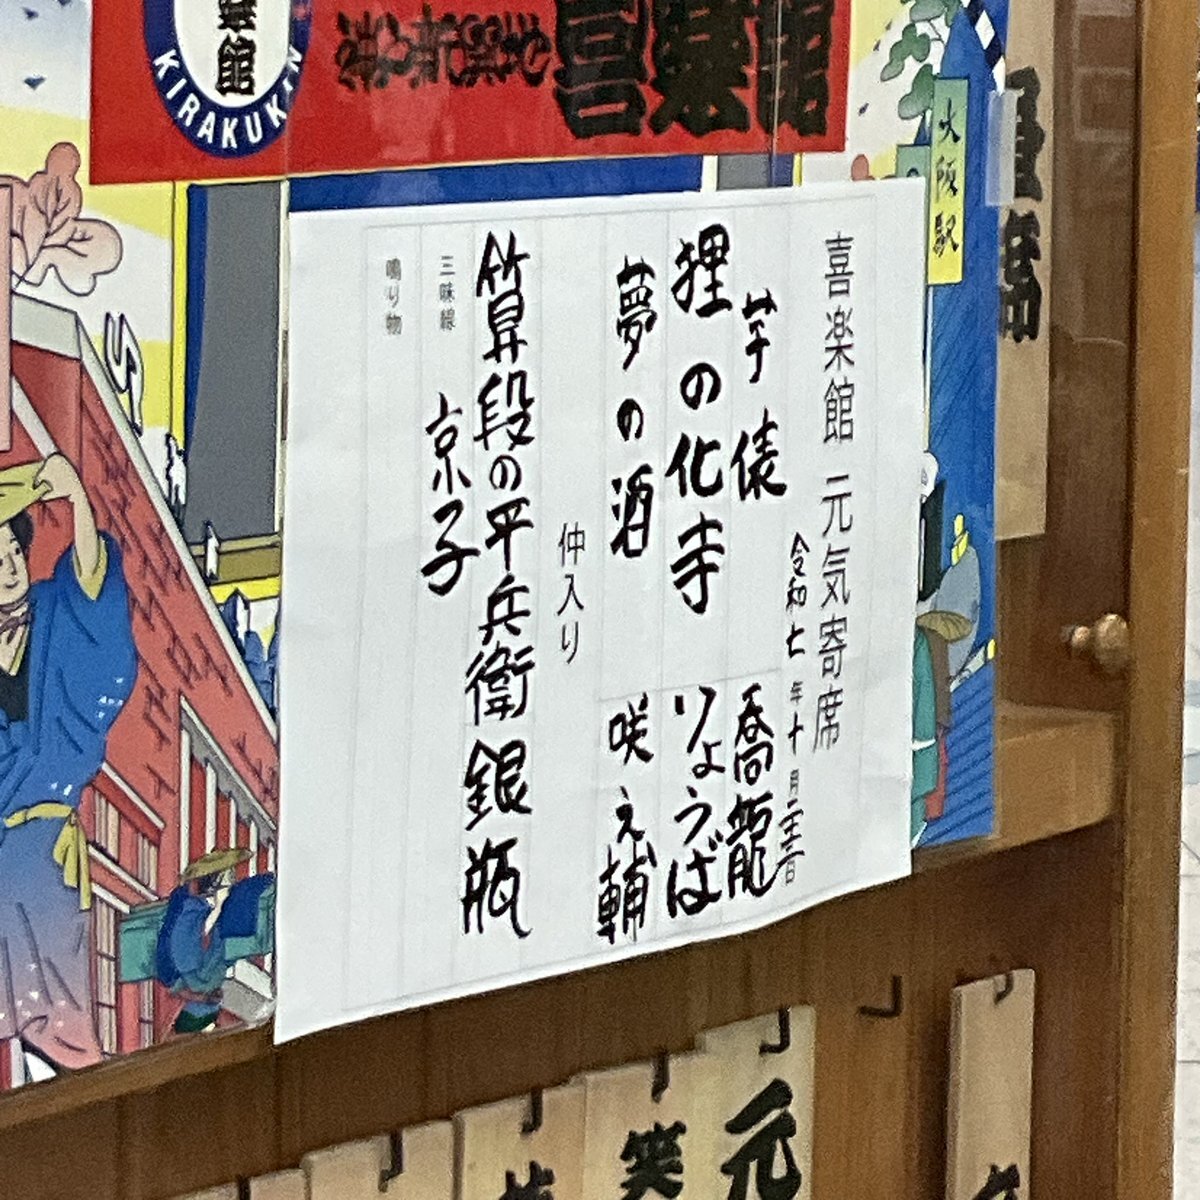 楽館
KIRAKUKAN
神戸新開地
喜楽館
大阪駅
喜楽館 元気寄席
令和七年十月二十三日
芋俵 喬龍
狸の化寺 りょうば
夢の酒 咲之輔
仲入り
算段の平兵衛 銀瓶
三味線 京子
鳴り物
元
笑